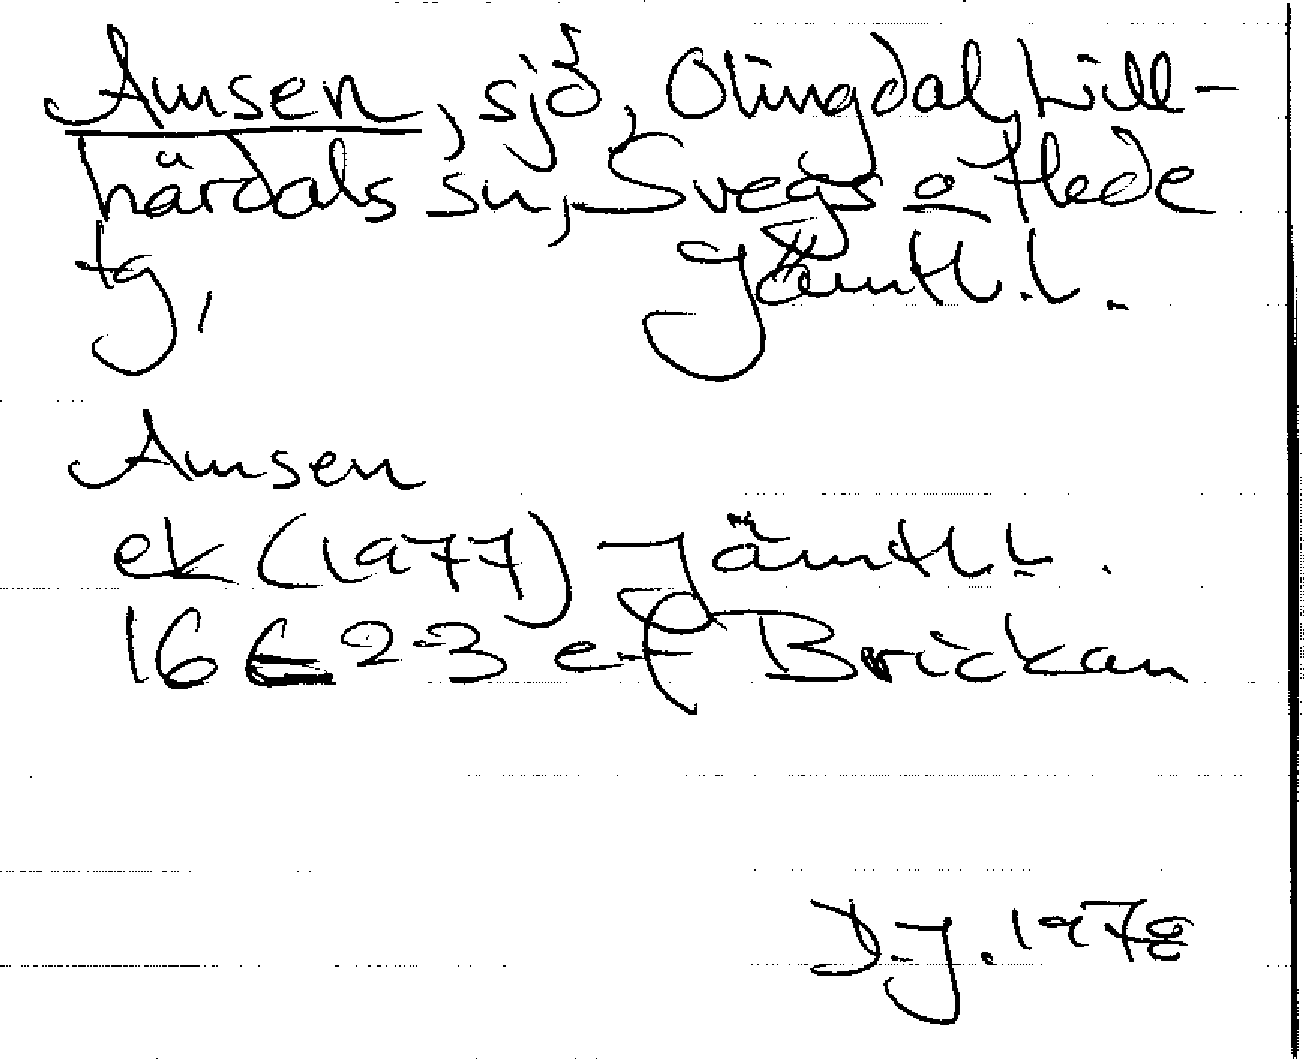 Amsen, sjö, Olingdal, Lill-
härdals sn, Svegs o Hede
tg, Jämtl. l.
Amsen
ek (1977) Jämtl. l.
16 E 2-3 e-f Brickan
D.J. 1978